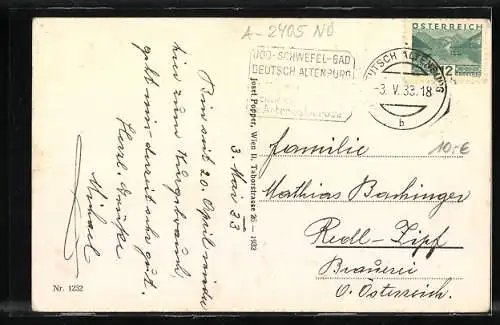 A-2405 NÖ
ÖSTERREICH
12
JOD-SCHWEFEL-BAD
DEUTSCH ALTENBURG
DEUTSCH ALTENBURG
-3.V.33.18
b
10,-€
Bin seit 20. April wieder
hier zum Kurgebrauch
geht mir derzeit sehr gut.
Herzl. Grüße
Michael
3. Mai 33
Josef Popper, Wien II, Taborstrasse 26 — 1932
Familie
Mathias Bachinger
Redl-Zipf
Brauerei
O. Österreich.
Nr. 1232